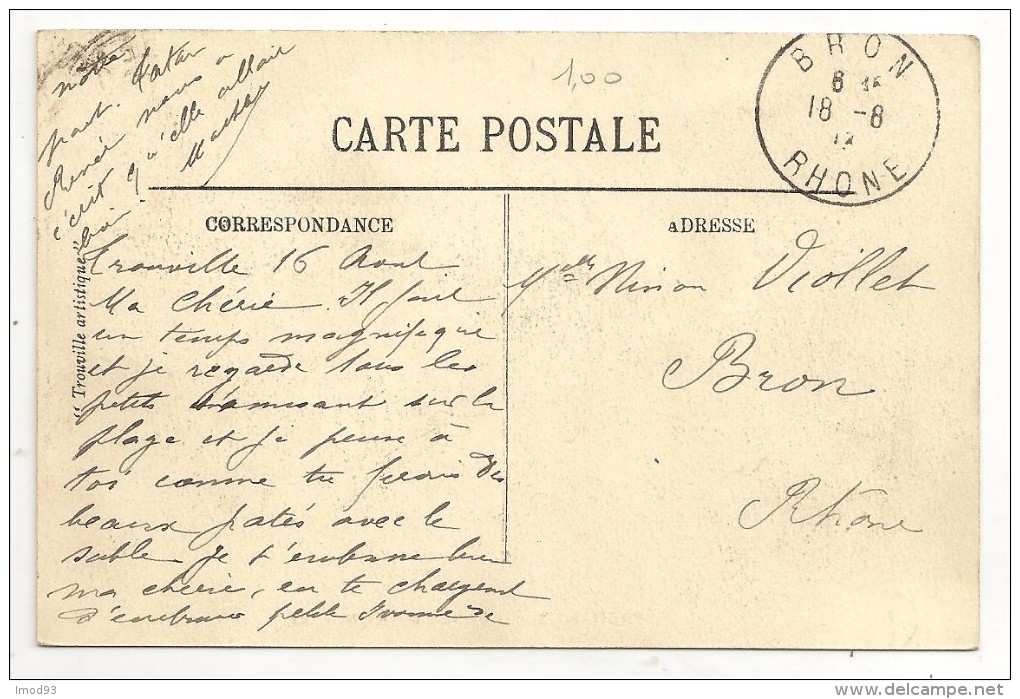 1,00
BRON
18 -8
12
RHONE
CARTE POSTALE
CORRESPONDANCE
ADRESSE
"Trouville artistique"
Trouville 16 Aout
Ma chérie. Il fait
un temps magnifique
et je regarde tous les
petits s'amusant sur la
plage et je pense à
toi comme tu ferais des
beaux patés avec le
sable. Je t'embrasse bien
ma chérie, en te chargeant
d'embrasser petite Ivonne de
notre
part. Tatan
Renée nous a
écrit qu'elle allait
bien!
Melle Ninon Viollet
Bron
Rhône
lmod93
delcampe.net